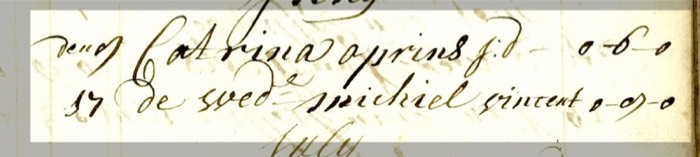 den 9 Catrina aprins j:d - 0-6-0
17 de wed:e michiel vincent 0-9-0
July